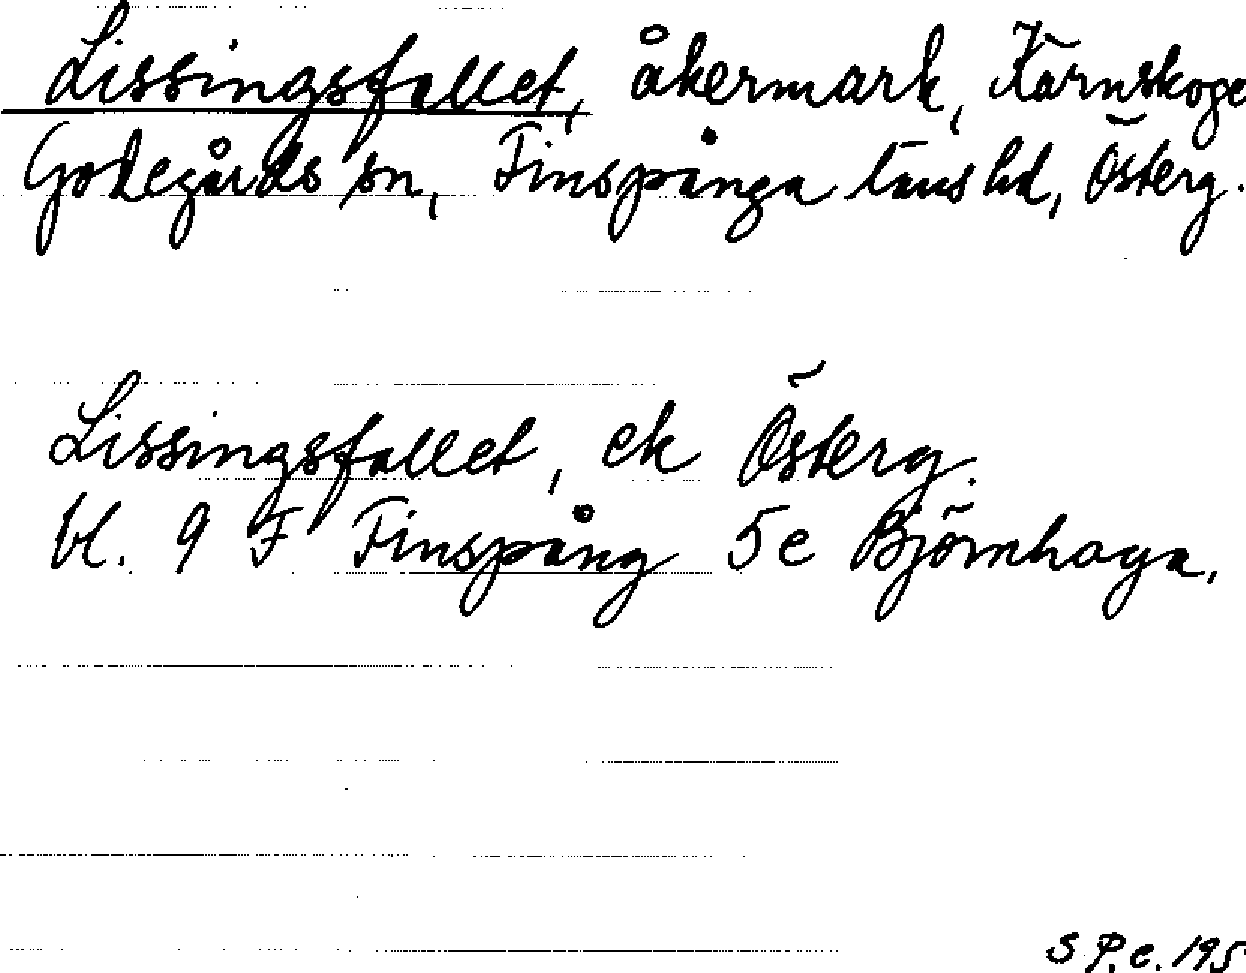 Lissingsfallet, åkermark, Kärnskoge
Godegårds sn, Finspånga läns hd, Österg.
Lissingsfallet, ek Österg.
bl. 9 F Finspång 5e Björnhaga.
S P.e. 195